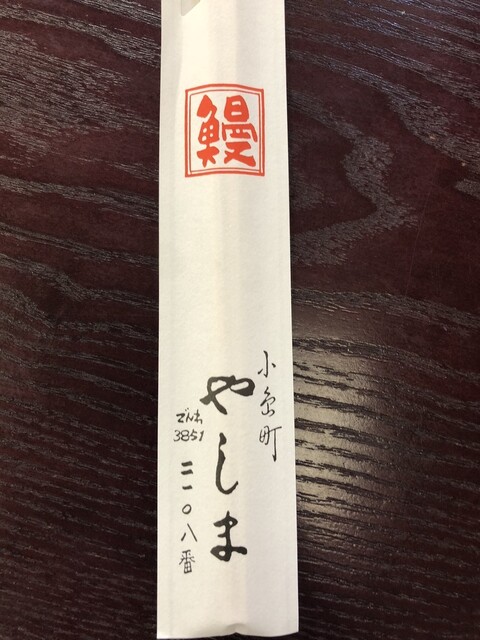 鰻
小島町
やしま
でんわ
3851
二一〇八番